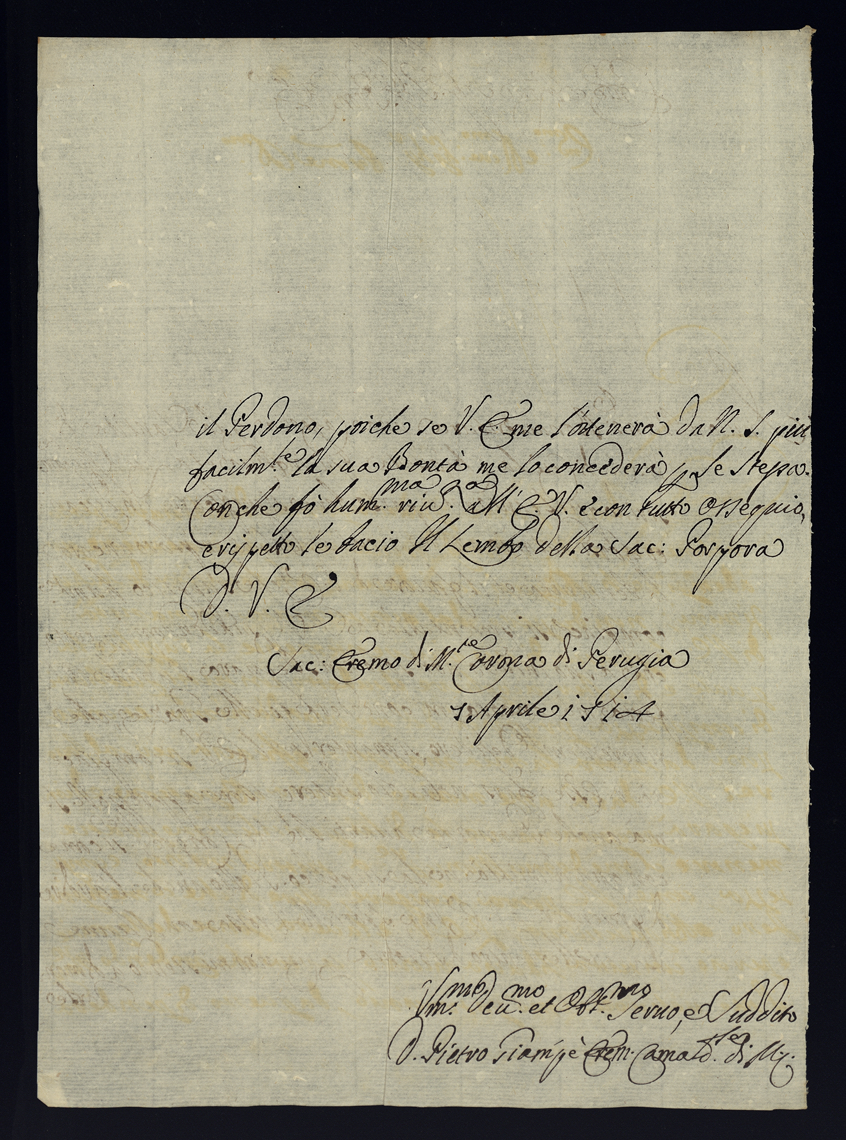 il Perdono, poiche se V. E. me l'ottenerà da N. S. più
facilm.te la sua Bontà me lo concederà p. se stessa.
Con che fò hum.ma riv.za all' E. V. e con tutto ossequio,
e rispetto le bacio il Lembo della Sac: Porpora
D. V. E.
Sac: Eremo di M.te Corona di Perugia
Aprile 1714
Vm.mo Deu.mo et Obl.mo Seruo, e Suddito
D. Pietro Erem. Camald.se di M. C.